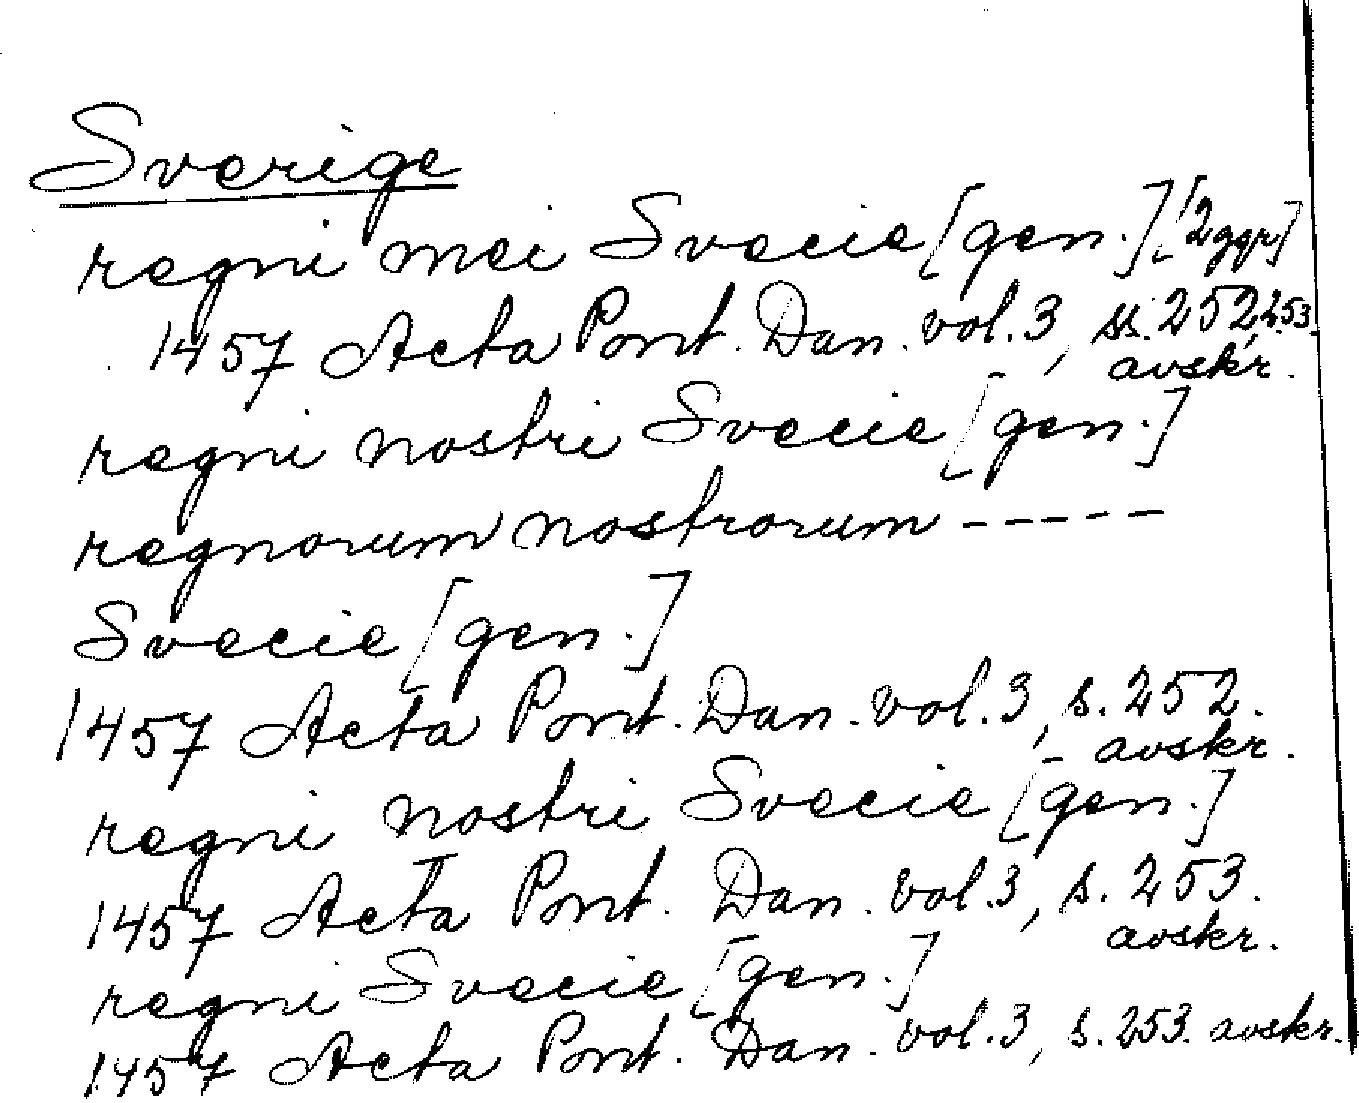 Sverige
regni mei Svecie [gen.] [2 ggr]
1457 Acta Pont. Dan. vol. 3, ss. 252, 253.
avskr.
regni nostri Svecie [gen.]
regnorum nostrorum -----
Svecie [gen.]
1457 Acta Pont. Dan. vol. 3, s. 252.
avskr.
regni nostri Svecie [gen.]
1457 Acta Pont. Dan. vol. 3, s. 253.
avskr.
regni Svecie [gen.]
1457 Acta Pont. Dan. vol. 3, s. 253. avskr.